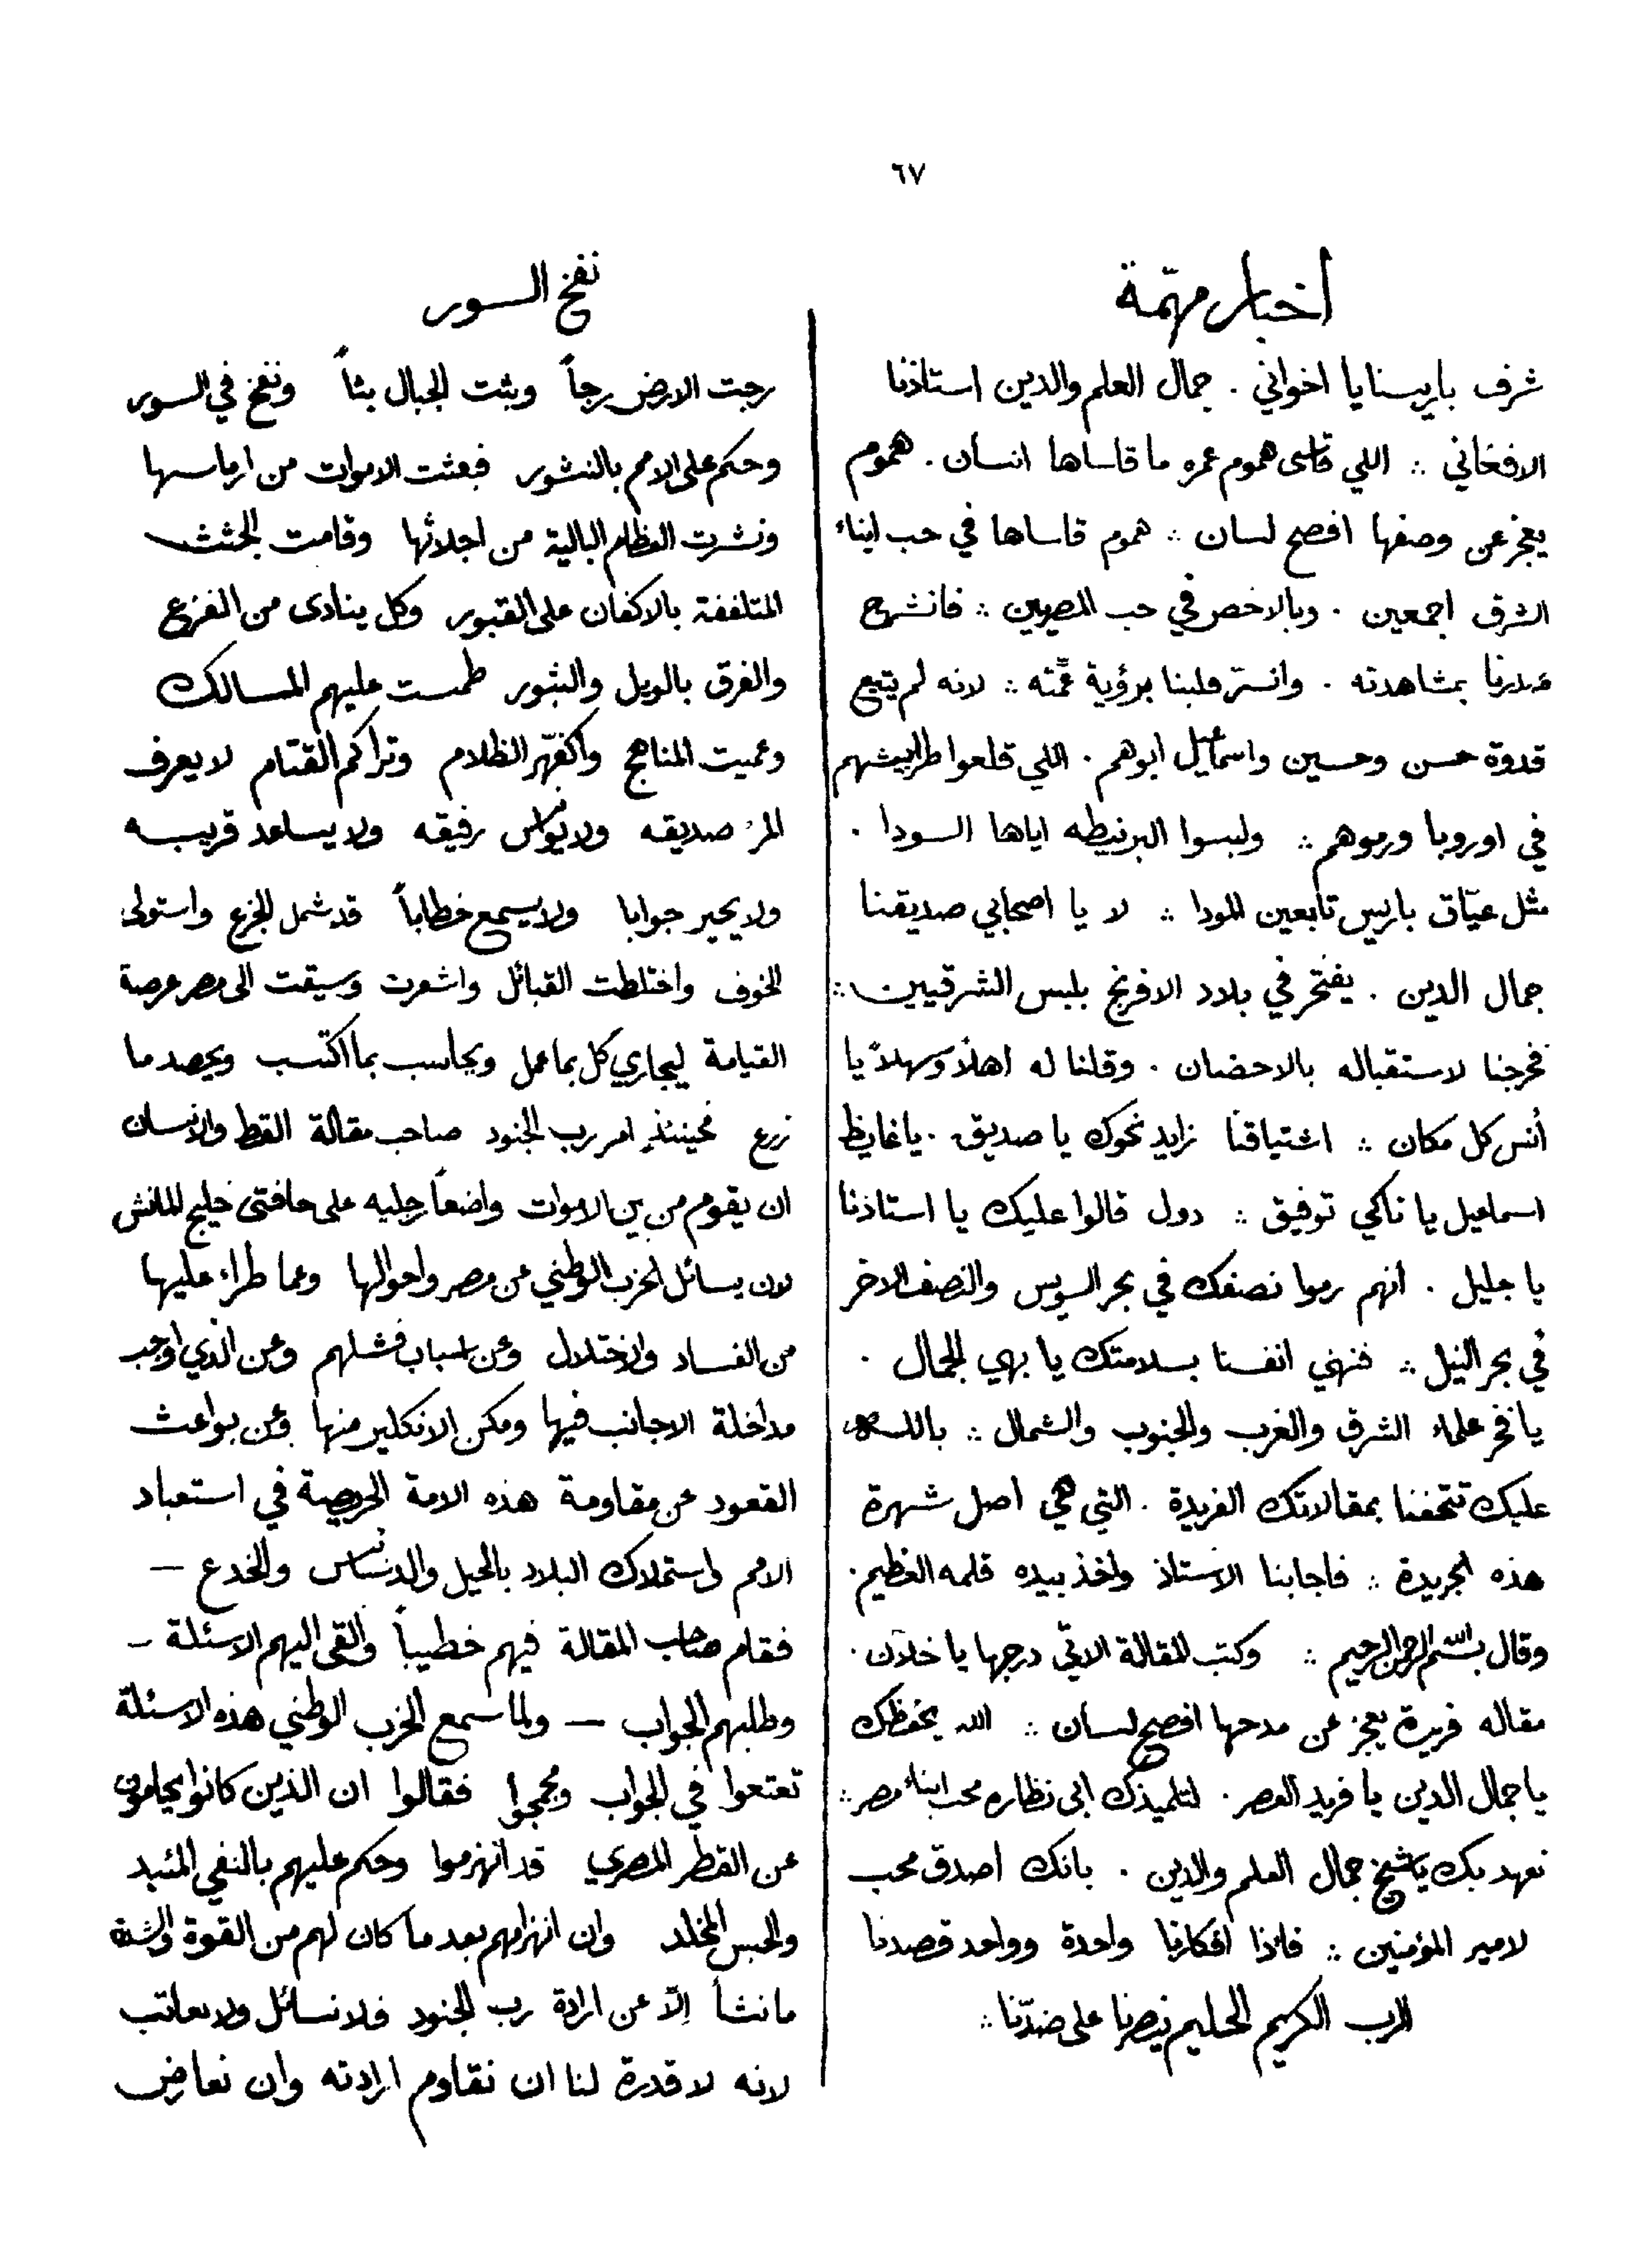 ٦٧
اخبار مهمّة
شرف باريسنا يا اخواني . جمال العلم والدين استاذنا
الافغاني ∴ اللي قاسى هموم عمره ما قاساها انسان . هموم
يعجز عن وصفها افصح لسان ∴ هموم قاساها في حب ابناء
الشرق اجمعين . وبالاخص في حب المصريين ∴ فانشرح
صدرنا بمشاهدته . وانسر قلبنا برؤية عمّته ∴ لانه لم يتبع
قدوة حسن وحسين واسماعيل ابوهم . اللي قلعوا طرابيشهم
في اوروبا ورموهم ∴ ولبسوا البرنيطه اياها السودا .
مثل عيّاق باريس تابعين المودا ∴ لا يا اصحابي صديقنا
جمال الدين . يفتخر في بلاد الافرنج بلبس الشرقيين ∴
فخرجنا لاستقباله بالاحضان . وقلنا له اهلاً وسهلاً يا
أنس كل مكان ∴ اشتياقنا زايد نحوك يا صديق . يا غايظ
اسماعيل يا ناكي توفيق ∴ دول قالوا عليك يا استاذنا
يا جليل . انهم رموا نصفك في بحر السويس والنصف الاخر
في بحر النيل ∴ فنهني انفسنا بسلامتك يا بهي الجمال .
يا فخر علماء الشرق والغرب والجنوب والشمال ∴ بالله
عليك تتحفنا بمقالاتك الفريدة . التي هي اصل شهرة
هذه الجريدة ∴ فاجابنا الاستاذ واخذ بيده قلمه العظيم .
وقال بسم الله الرحمن الرحيم ∴ وكتب المقالة الاتي درجها يا خلان .
مقاله فريدة يعجز عن مدحها افصح لسان ∴ الله يحفظك
يا جمال الدين يا فريد العصر . لتلميذك ابي نظاره محب ابناء مصر ∴
نعهد بك يا شيخ جمال العلم والدين . بانك اصدق محب
لامير المؤمنين ∴ فاذا افكارنا واحدة وواحد قصدنا
الرب الكريم الحليم ينصرنا على ضدّنا ∴
نفخ السور
رجت الارض رجاً وبثت الجبال بثاً ونفخ في السور
وحكم على الامم بالنشور فبعثت الاموات من ارماسها
ونشرت العظام البالية من اجداثها وقامت الجثث
المتلففة بالاكفان على القبور وكل ينادى من الفزع
والفرق بالويل والثبور طمست عليهم المسالك
وعميت المناهج واكفهّر الظلام وتراكم القتام لا يعرف
المرء صديقه ولا يؤاس رفيقه ولا يساعد قريبه
ولا يحير جوابا ولا يسمع خطاباً قد شمل الجزع واستولى
الخوف واختلطت القبائل واشعرت وسيقت الى مصر عرصة
القيامة ليجازي كل بما عمل ويحاسب بما اكتسب ويحصد ما
زرع فحينئذٍ امر رب الجنود صاحب مقالة القط والانسان
ان يقوم من بين الاموات واضعاً رجليه على حافتى خليج المانش
لان يسائل الحزب الوطني عن مصر واحوالها وعما طراء عليها
من الفساد والاختلال وعن اسباب فشلهم وعن الذي اوجب
مداخلة الاجانب فيها ومكن الانكليز منها وعن بواعث
القعود عن مقاومة هذه الامة الحريصة في استعباد
الامم واستملاك البلاد بالحيل والدسائس والخدع —
فقام صاحب المقالة فيهم خطيباً والقى اليهم الاسئلة —
وطلبهم الجواب — ولما سمع الحزب الوطني هذه الاسئلة
تعتعوا في الجواب ومجمجوا فقالوا ان الذين كانوا يحامون
عن القطر المصري قد انهزموا وحكم عليهم بالنفي المئبد
والحبس المخلد وان انهزامهم بعد ما كان لهم من القوة والشدة
ما نشأ الّا عن ارادة رب الجنود فلا نسائل ولا نعاتب
لانه لا قدرة لنا ان نقاوم ارادته وان نعارض